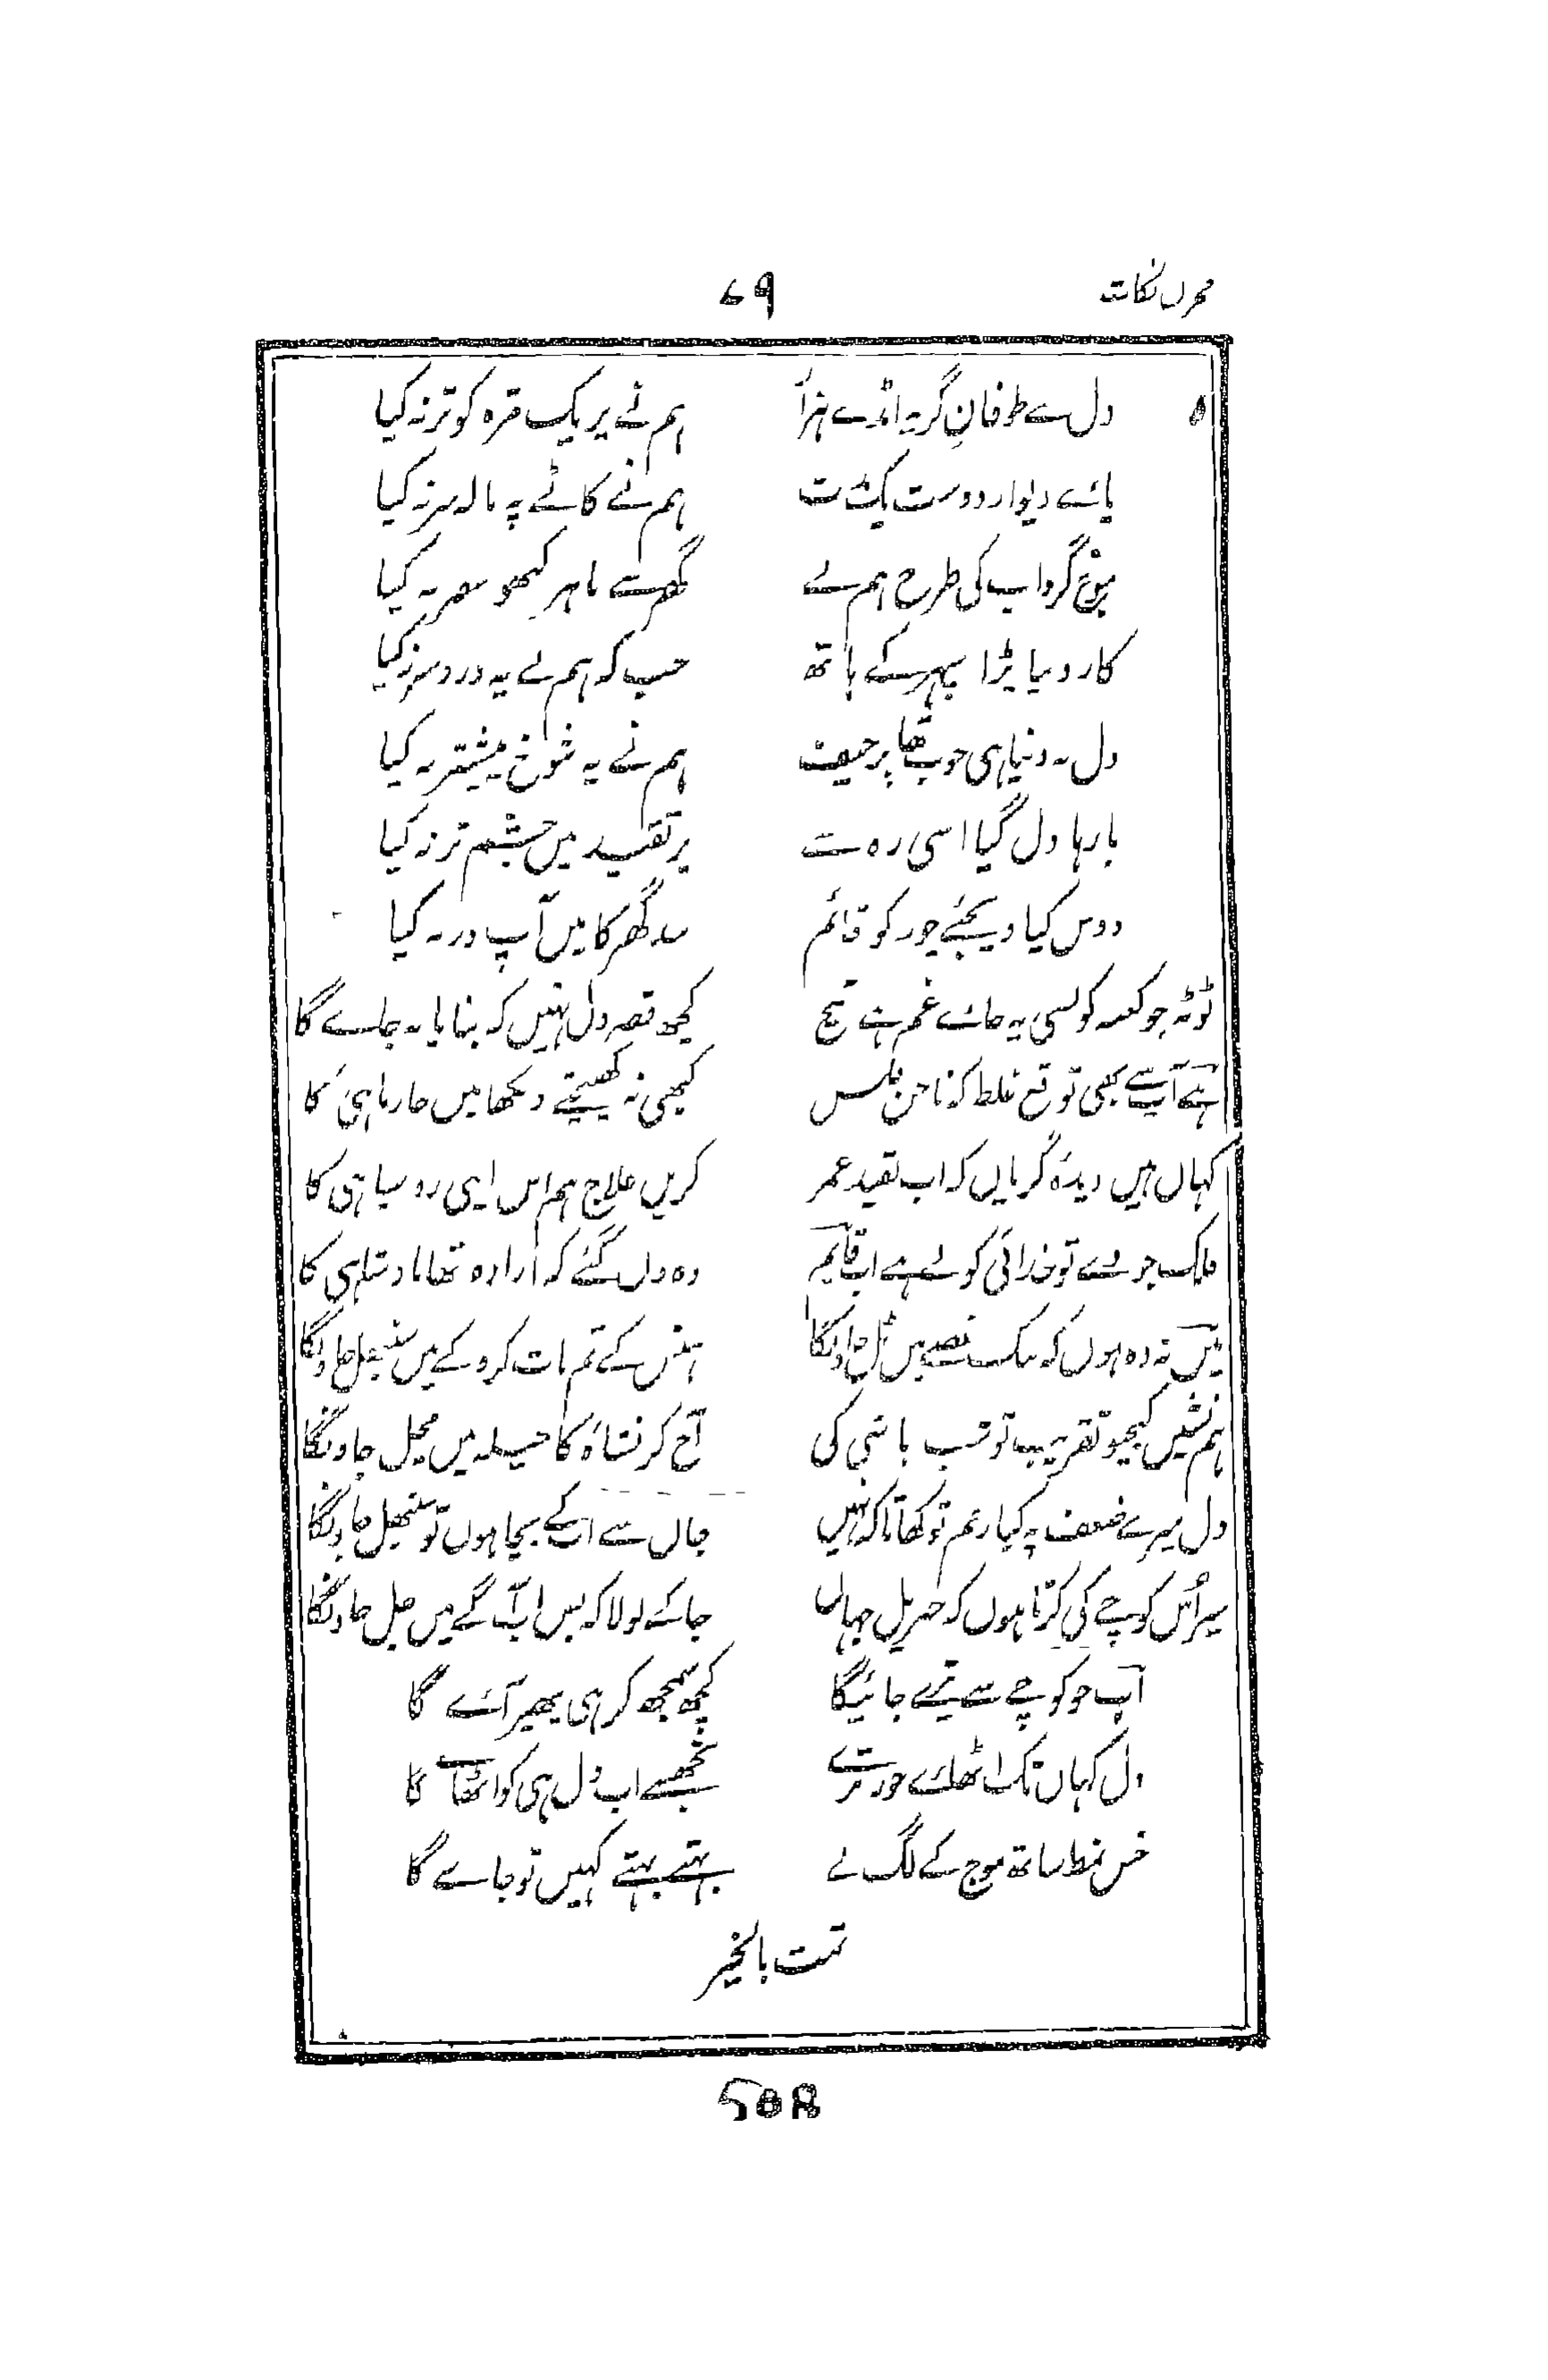 مخزن نکات ۶۹
دل سے طوفانِ گریہ امڈے ہزار ہم نے پر یک مژہ کو تر نہ کیا
پائے دیوار دوست ہم نے کاٹے پہ نالہ سر نہ کیا
موج گرداب کی طرح ہم نے گھر سے باہر کبھو سفر نہ کیا
کار دنیا پڑا سپہر کے ہاتھ جب کہ ہم نے یہ درد سر نہ کیا
دل نہ دنیا ہی خوب تھا پر حیف ہم نے یہ شوخ پیشتر نہ کیا
بارہا دل گیا اسی رہ سے پر تقید میں چشم تر نہ کیا
دوس کیا دیجئے چور کو قائم بند گھر کا میں آپ در نہ کیا
ٹوٹہ جو کعبہ کونسی یہ جائے غم ہے شیخ کچھ قصر دل نہیں کہ بنایا نہ جاے گا
ہے آپ سے بھی توقع غلط کہ ناخن فلس کبھی نہ کھینچتے دیکھا میں خار ماہی کا
کہاں ہیں دیدۂ گریاں کہ اب بقید عمر کریں علاج ہم اس اپنی رو سیاہی کا
فلک جو دے تو خدائی کو لے ہے اب قایم وہ دل گئے کہ ارادہ تھا بادشاہی کا
میں نہ وہ ہوں کہ تنک غصے میں ٹل جاونگا ہنس کے تم بات کرو گے میں سنبھل جاونگا
ہم نشیں کیجیو تقریب تو شب باشی کی آج کر نشاہ کا حیلہ میں مچل جاونگا
دل میرے ضعف پہ کیا رحم تو کھاتا کہ نہیں جاں سے اب کے بچا ہوں تو سنبھل جاونگا
سیر اُس کوچے کی کرتا ہوں کہ جبریل جہاں جا کے بولا کہ بس اب آگے میں جل جاونگا
آپ جو کوچے سے تیرے جائیگا کچھ سمجھ کر ہی پھر آئے گا
دل کہاں تک اٹھائے جور ترے تجھسے اب دل ہی کو اٹھاے گا
خس نمط ساتھ موج کے لگ لے بہتے بہتے کہیں تو جاے گا
تمت بالخیر
508